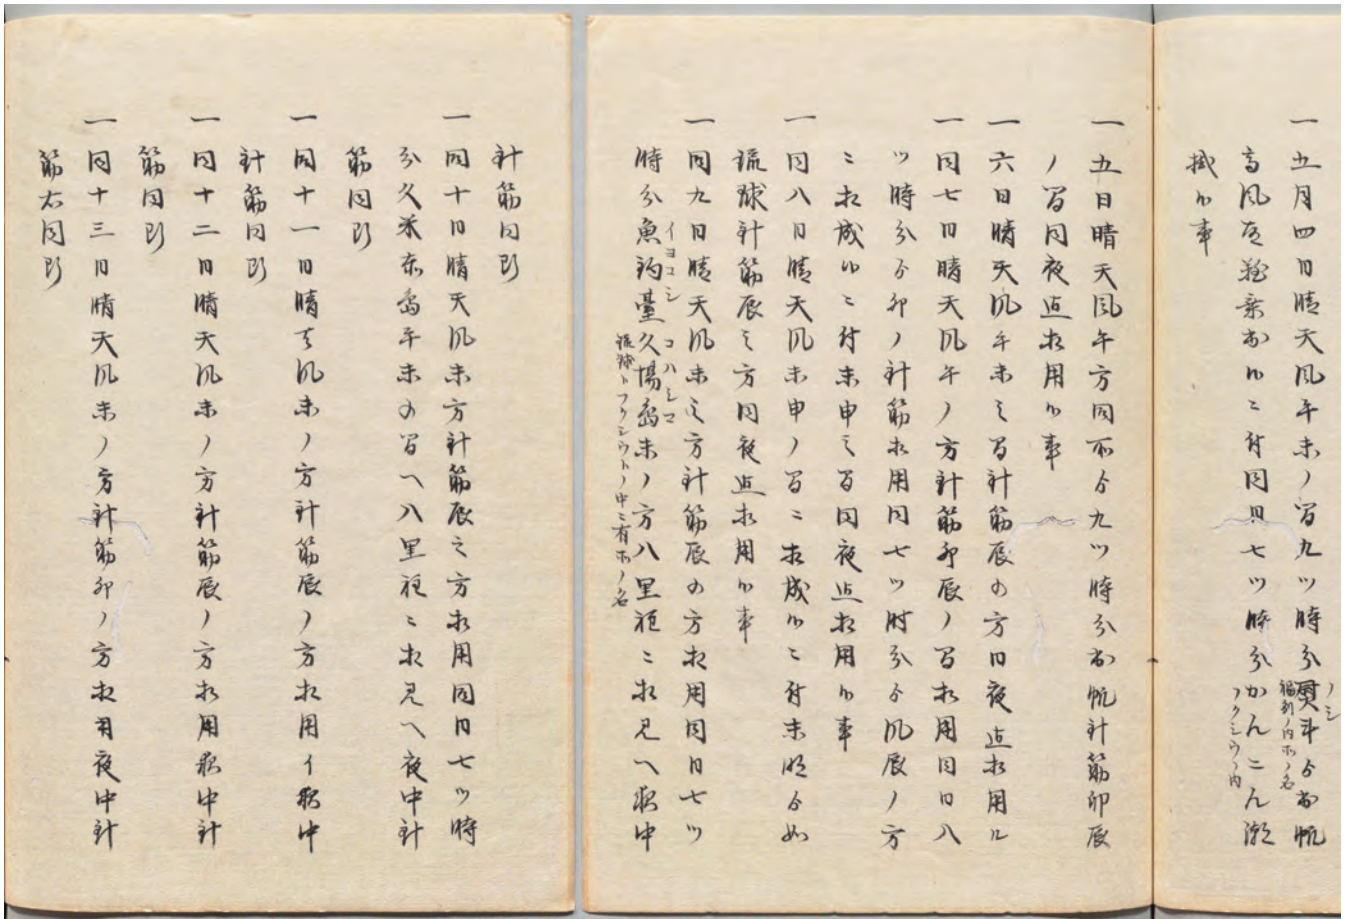 一 五月四日晴天風午未ノ間九ツ時分熨斗ゟ出帆
ノシ
福州ノ内所ノ名
高風
候ニ付同日七ツ時分かんこん瀬
フクシウノ内
掛候事
一 五日晴天風午方同所ゟ九ツ時分出帆針筋卯辰
ノ間同夜迄相用候事
一 六日晴天風午未之間針筋辰の方日夜迄相用ル
一 同七日晴天風午ノ方針筋卯辰ノ間相用同日八
ツ時分ゟ卯ノ針筋相用同七ツ時分ゟ風辰ノ方
ニ相成候ニ付未申之間同夜迄相用候事
一 同八日晴天風未申ノ間ニ相成候ニ付未明ゟ如
琉球針筋辰之方同夜迄相用候事
一 同九日晴天風未之方針筋辰の方相用同日七ツ
イヨコシ コハシマ
時分魚釣臺久場島未ノ方八里程ニ相見へ夜中
琉球トフクシウトノ中ニ有所ノ名
針筋同断
一 同十日晴天風未方針筋辰之方相用同日七ツ時
分久米赤島午未の間へ八里程ニ相見へ夜中針
筋同断
一 同十一日晴天風未ノ方針筋辰ノ方相用イ夜中
針筋同断
一 同十二日晴天風未ノ方針筋辰ノ方相用夜中針
筋同断
一 同十三日晴天風未ノ方針筋卯ノ方相用夜中針
筋右同断